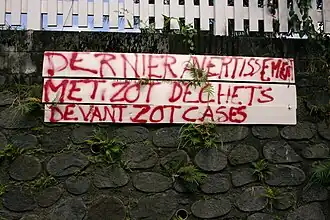 DERNIER AVERTISSEMENT
MET, ZOT DECHETS
DEVANT ZOT CASES